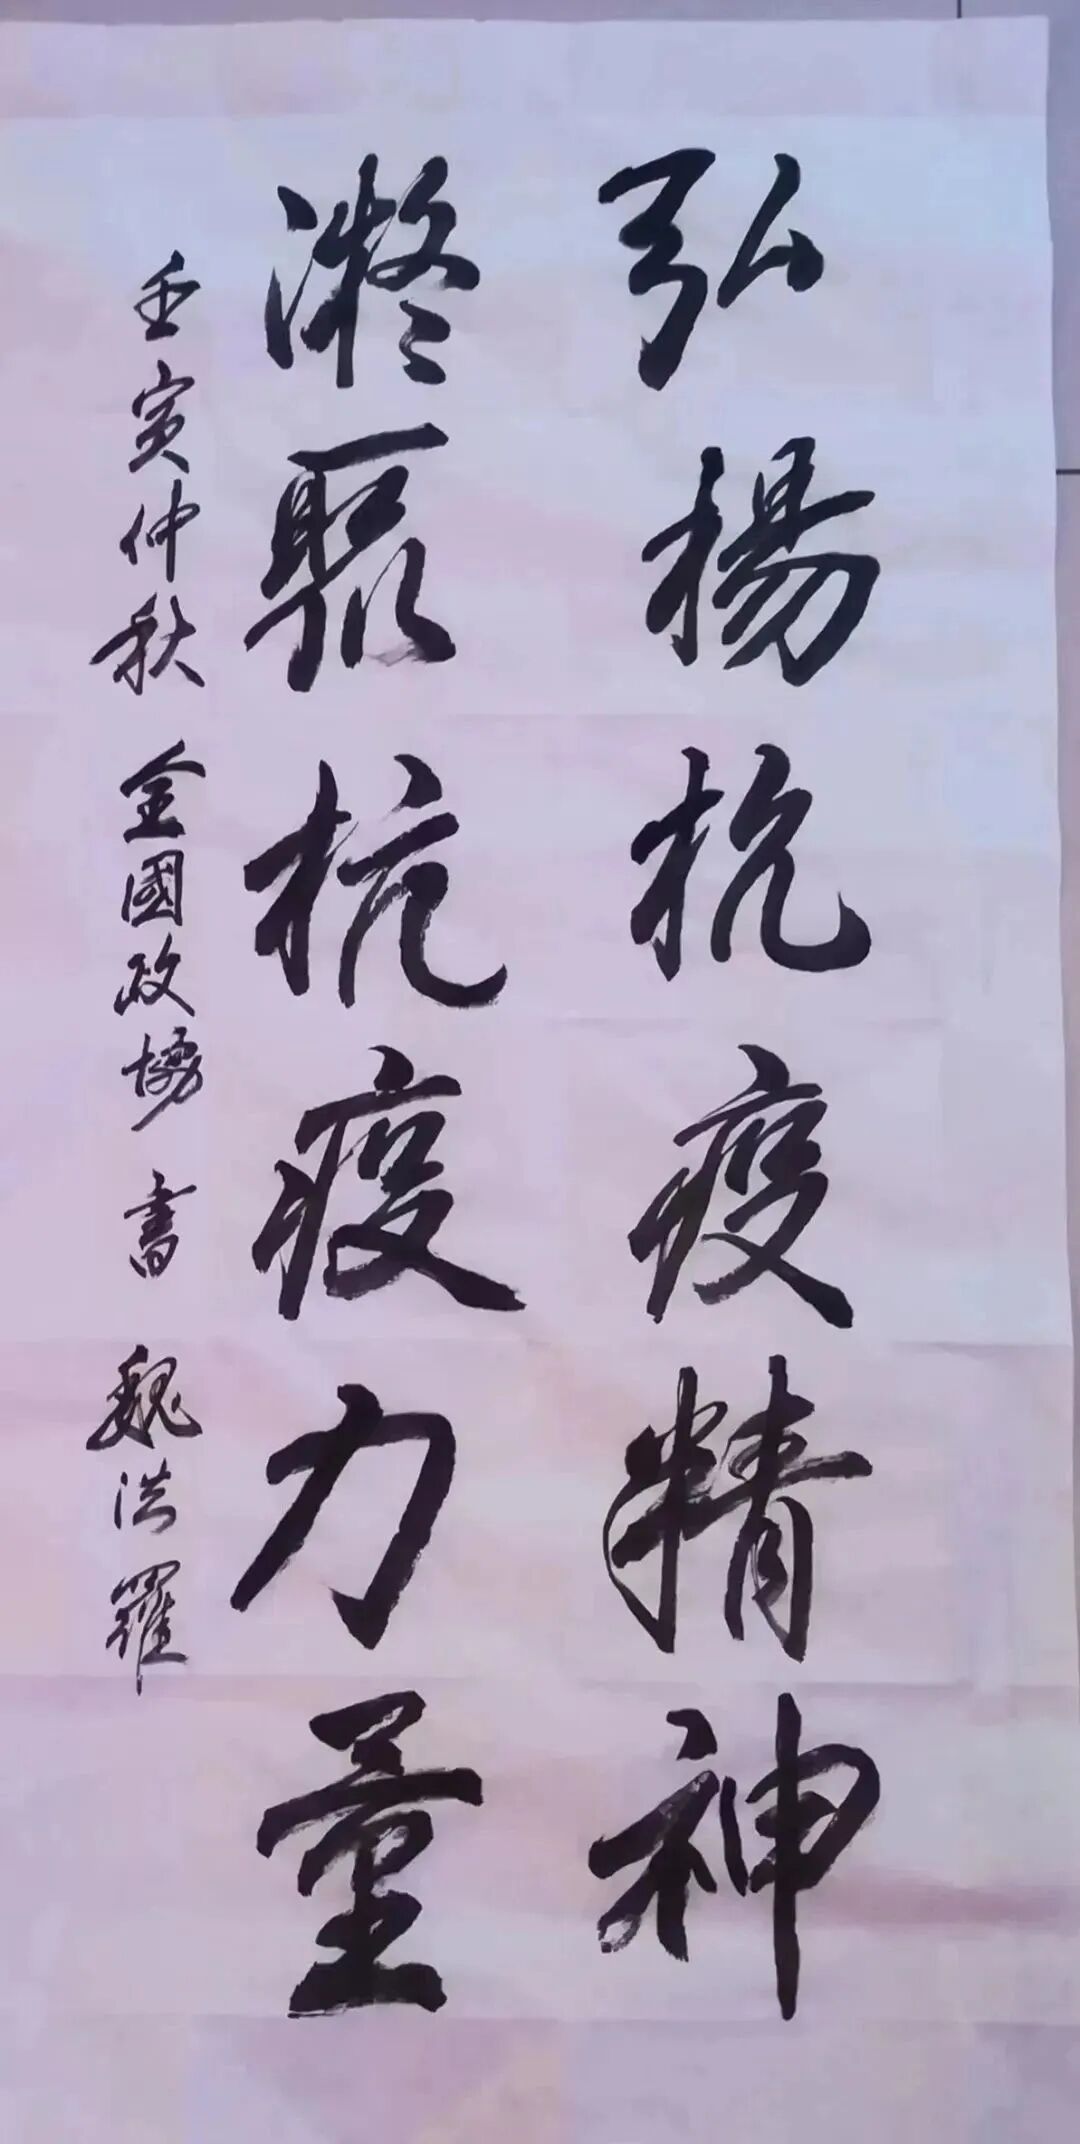 弘揚抗疫精神
凝聚抗疫力量
壬寅仲秋 全國政協 書 魏洪羅